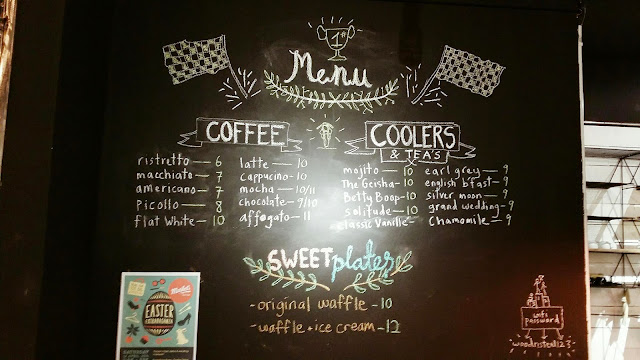 1st
Menu
COFFEE
ristretto — 6
macchiato — 7
americano — 7
Picollo — 8
flat White — 10
latte — 10
Cappucino — 10
mocha — 10/11
chocolate — 9/10
affogato — 11
COOLERS
& TEA'S
mojito — 10
The Geisha — 10
Betty Boop — 10
solitude — 10
classic Vanille —
earl grey — 9
english b'fast — 9
silver moon — 9
grand wedding — 9
Chamomile — 9
SWEET plates
- original waffle - 10
- waffle + ice cream - 12
EASTER
EXTRAVAGANZA
wifi
password